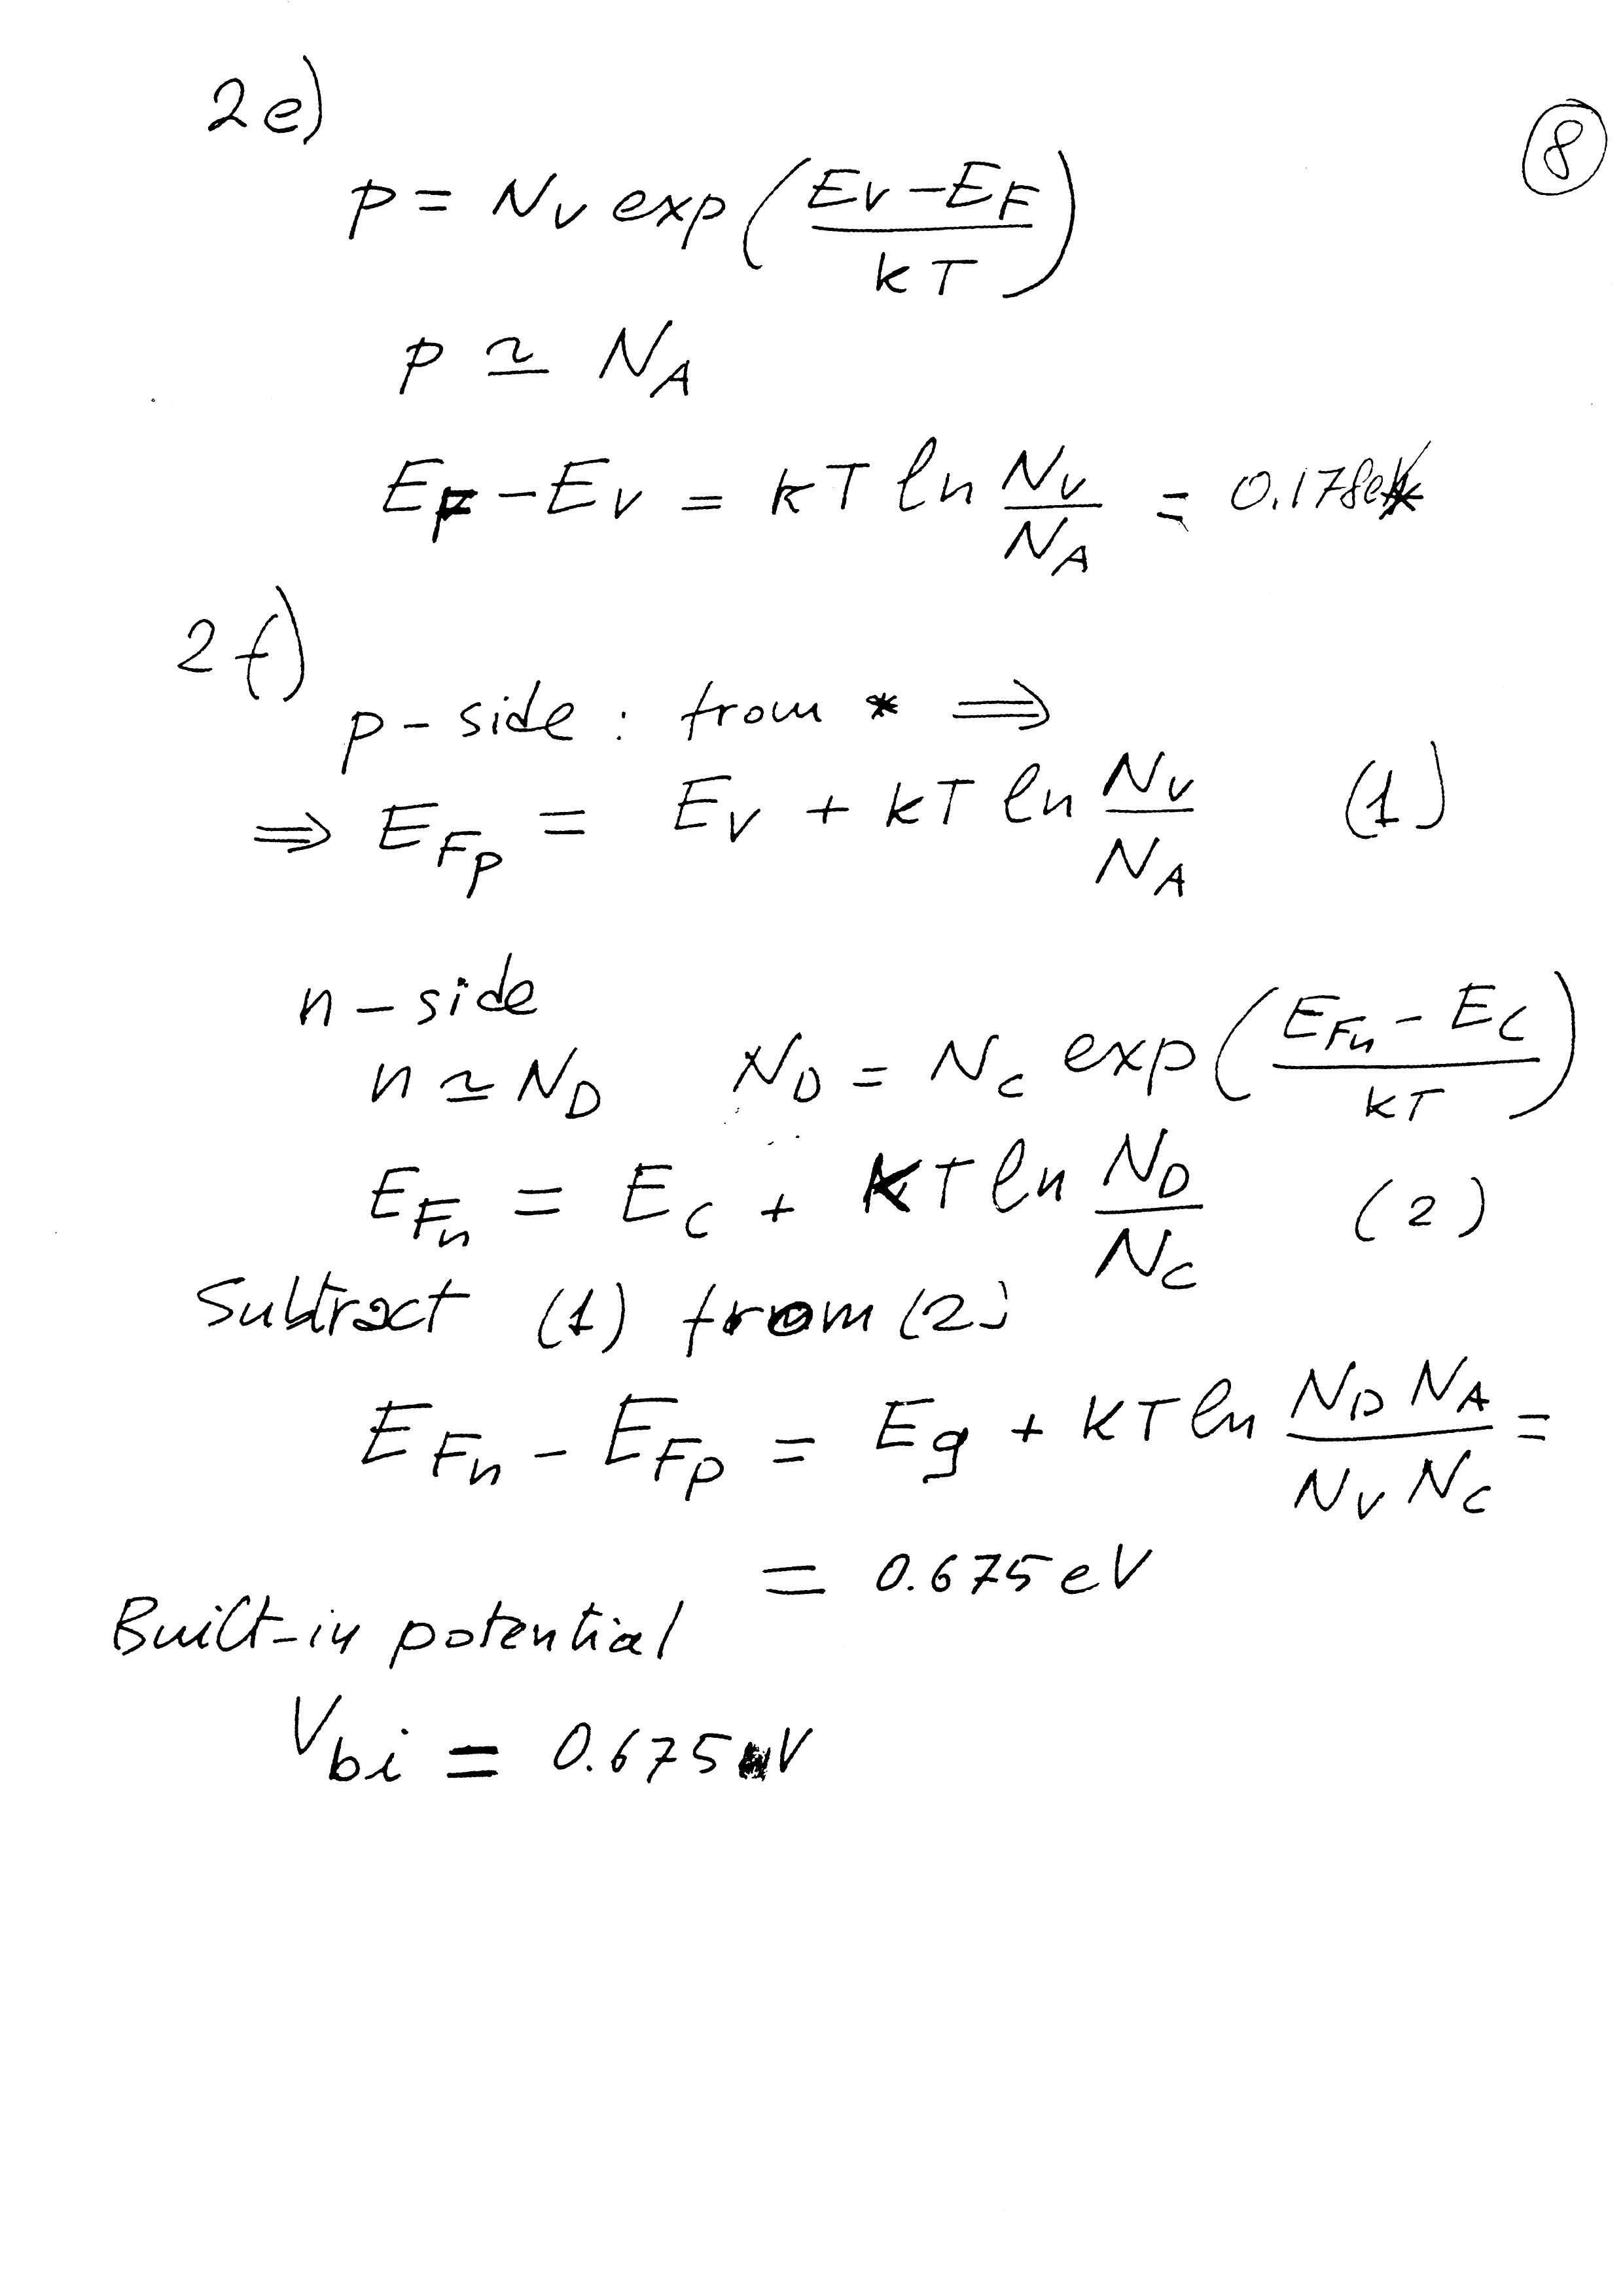 2e)
8
p = Nv exp(Ev - EF / kT)
p ≃ NA
EF - Ev = kT ln Nv / NA = 0.178eV *
2f)
p-side: from * ⇒
⇒ EFp = Ev + kT ln Nv / NA (1)
n-side
n ≃ ND ND = Nc exp(EFn - Ec / kT)
EFn = Ec + kT ln ND / Nc (2)
Subtract (1) from (2)
EFn - EFp = Eg + kT ln ND NA / Nv Nc =
= 0.675 eV
Built-in potential
Vbi = 0.675 V